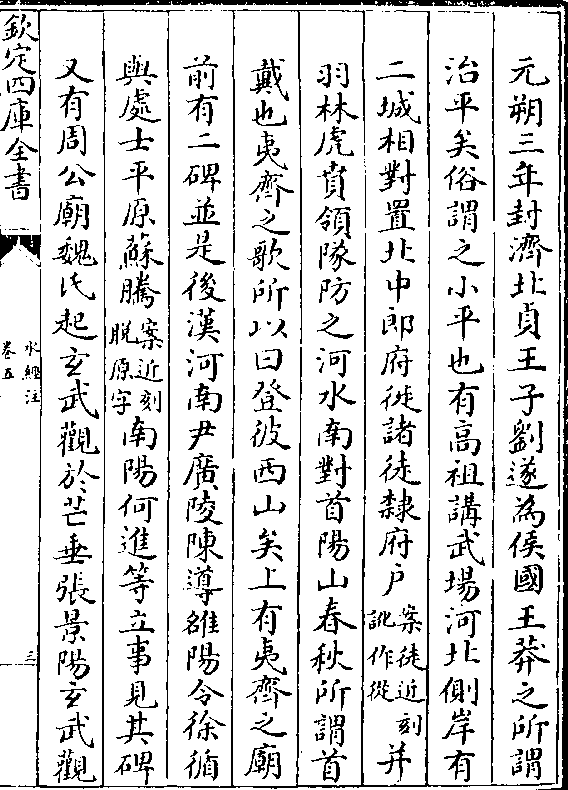 元朔三年封濟北貞王子劉遂為侯國王莽之所謂
治平矣俗謂之小平也有高祖講武場河北側岸有
二城相對置北中郎府徙諸徒隸府户案徒近刻訛作從并
羽林虎賁領隊防之河水南對首陽山春秋所謂首
戴也夷齊之歌所以曰登彼西山矣上有夷齊之廟
前有二碑並是後漢河南尹廣陵陳導雒陽令徐循
與處士平原蘇騰案近刻脱原字南陽何進等立事見其碑
又有周公廟魏氏起玄武觀於芒垂張景陽玄武觀
欽定四庫全書
水經注
卷五
三